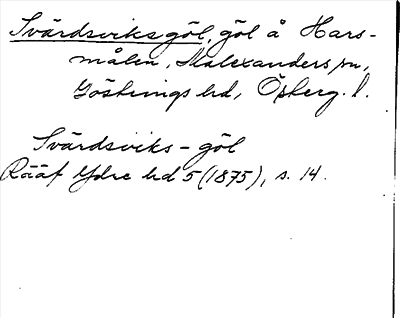 Svärdsviksgöl, göl å Hars-
målen, Malexanders sn,
Göstrings hd, Österg. l.
Svärdsviks-göl
Rääf Ydre hd 5 (1875), s. 14.